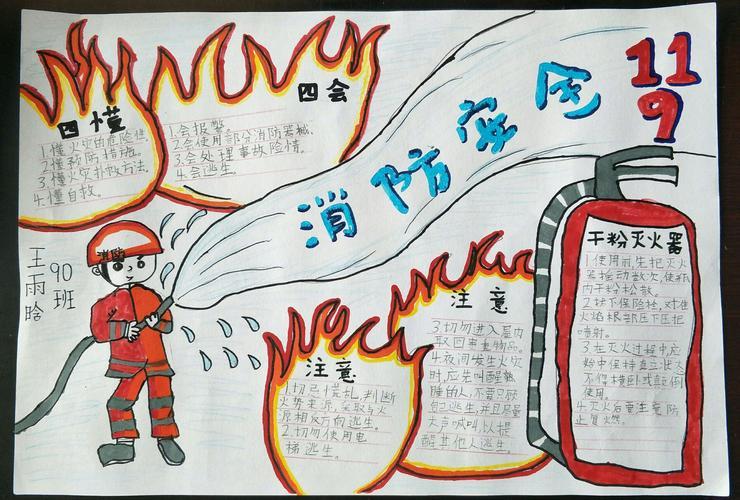 消防安全
119
四懂
1.懂火灾的危险性.
2.懂预防措施.
3.懂火灾扑救方法.
4.懂自救。
四会
1.会报警
2.会使用部分消防器械.
3.会处理事故险情.
4.会逃生.
王雨晗
90班
消防
注意
1.切忌慌乱,判断
火势来源,采取与火
源相反方向逃生。
2.切勿使用电
梯逃生。
注意
3.切勿进入屋内
取回贵重物品。
4.夜间发生火灾
时,应先叫醒熟
睡的人,不要只顾
自己逃生,并且尽量
大声喊叫,以提
醒其他人逃生。
干粉灭火器
1.使用前,先把灭火
器摇动数次,使瓶
内干粉松散.
2.拔下保险栓,对准
火焰根部压下压把
喷射.
3.在灭火过程中,应
始中保持直立状态
不得横卧或颠倒
使用.
4.灭火后要注意防
止复燃.